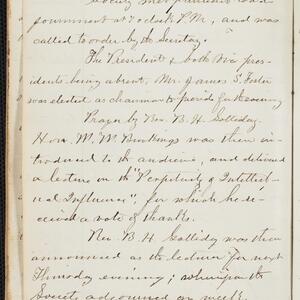 Society met pursuant to ad
journment at 7 oclock P.M., and was
called to order by the Secretary.
The President & both Vice pres-
idents being absent, Mr. James S. Foster
was elected as chairman to preside for the evening
Prayer by Rev. B. H. Golliday.
Hon. M. W. Brookings was then in-
troduced to the audience, and delivered
a lecture on the "Perpetuity of Intellect-
ual Influence", for which he re-
ceived a vote of thanks.
Rev. B. H. Golliday was then
announced as the lecturer for next
Thursday evening; whereupon the
Society adjourned one week.